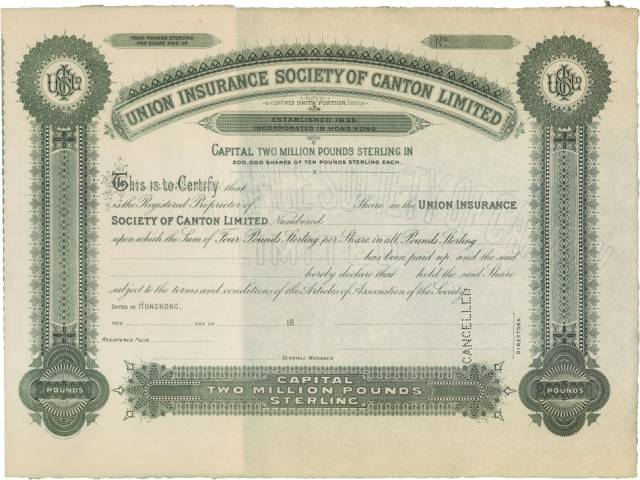 FOUR POUNDS STERLING
PER SHARE PAID UP
No
UNION INSURANCE SOCIETY OF CANTON LIMITED
VIS UNITA FORTIOR
ESTABLISHED 1835
INCORPORATED IN HONG KONG
CAPITAL TWO MILLION POUNDS STERLING IN
200,000 SHARES OF TEN POUNDS STERLING EACH.
This is to Certify that
is the Registered Proprietor of Share in the UNION INSURANCE
SOCIETY OF CANTON LIMITED, Numbered
upon which the Sum of Four Pounds Sterling per Share in all Pounds Sterling
has been paid up, and the said
hereby declare that hold the said Share
subject to the terms and conditions of the Articles of Association of the Society.
DATED IN HONGKONG,
THIS DAY OF 19
REGISTERED FOLIO
GENERAL MANAGER
DIRECTORS.
CANCELLED
POUNDS
CAPITAL
TWO MILLION POUNDS
STERLING.
POUNDS